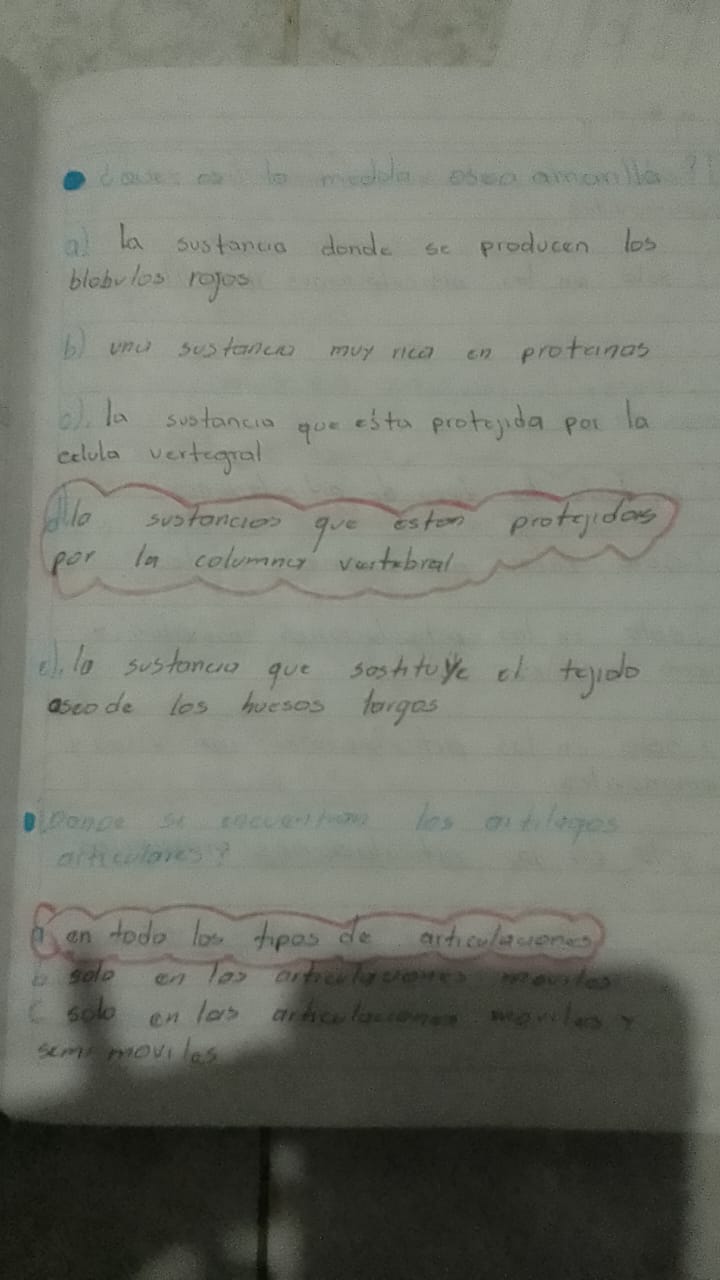 ¿Que es la medula osea amarilla?
a) la sustancia donde se producen los
blobulos rojos
b) una sustancia muy rica en proteinas
c). la sustancia que esta protejida por la
celula vertegral
d) la sustancias que estan protejidas
por la columna vertebral
e). la sustancia que sostituye el tejido
aseo de los huesos largos
Donde se encuentran los artilagos
articulares?
a en todo los tipos de articulaciones
b solo en las articulaciones moviles
c solo en las articulaciones moviles y
semi moviles